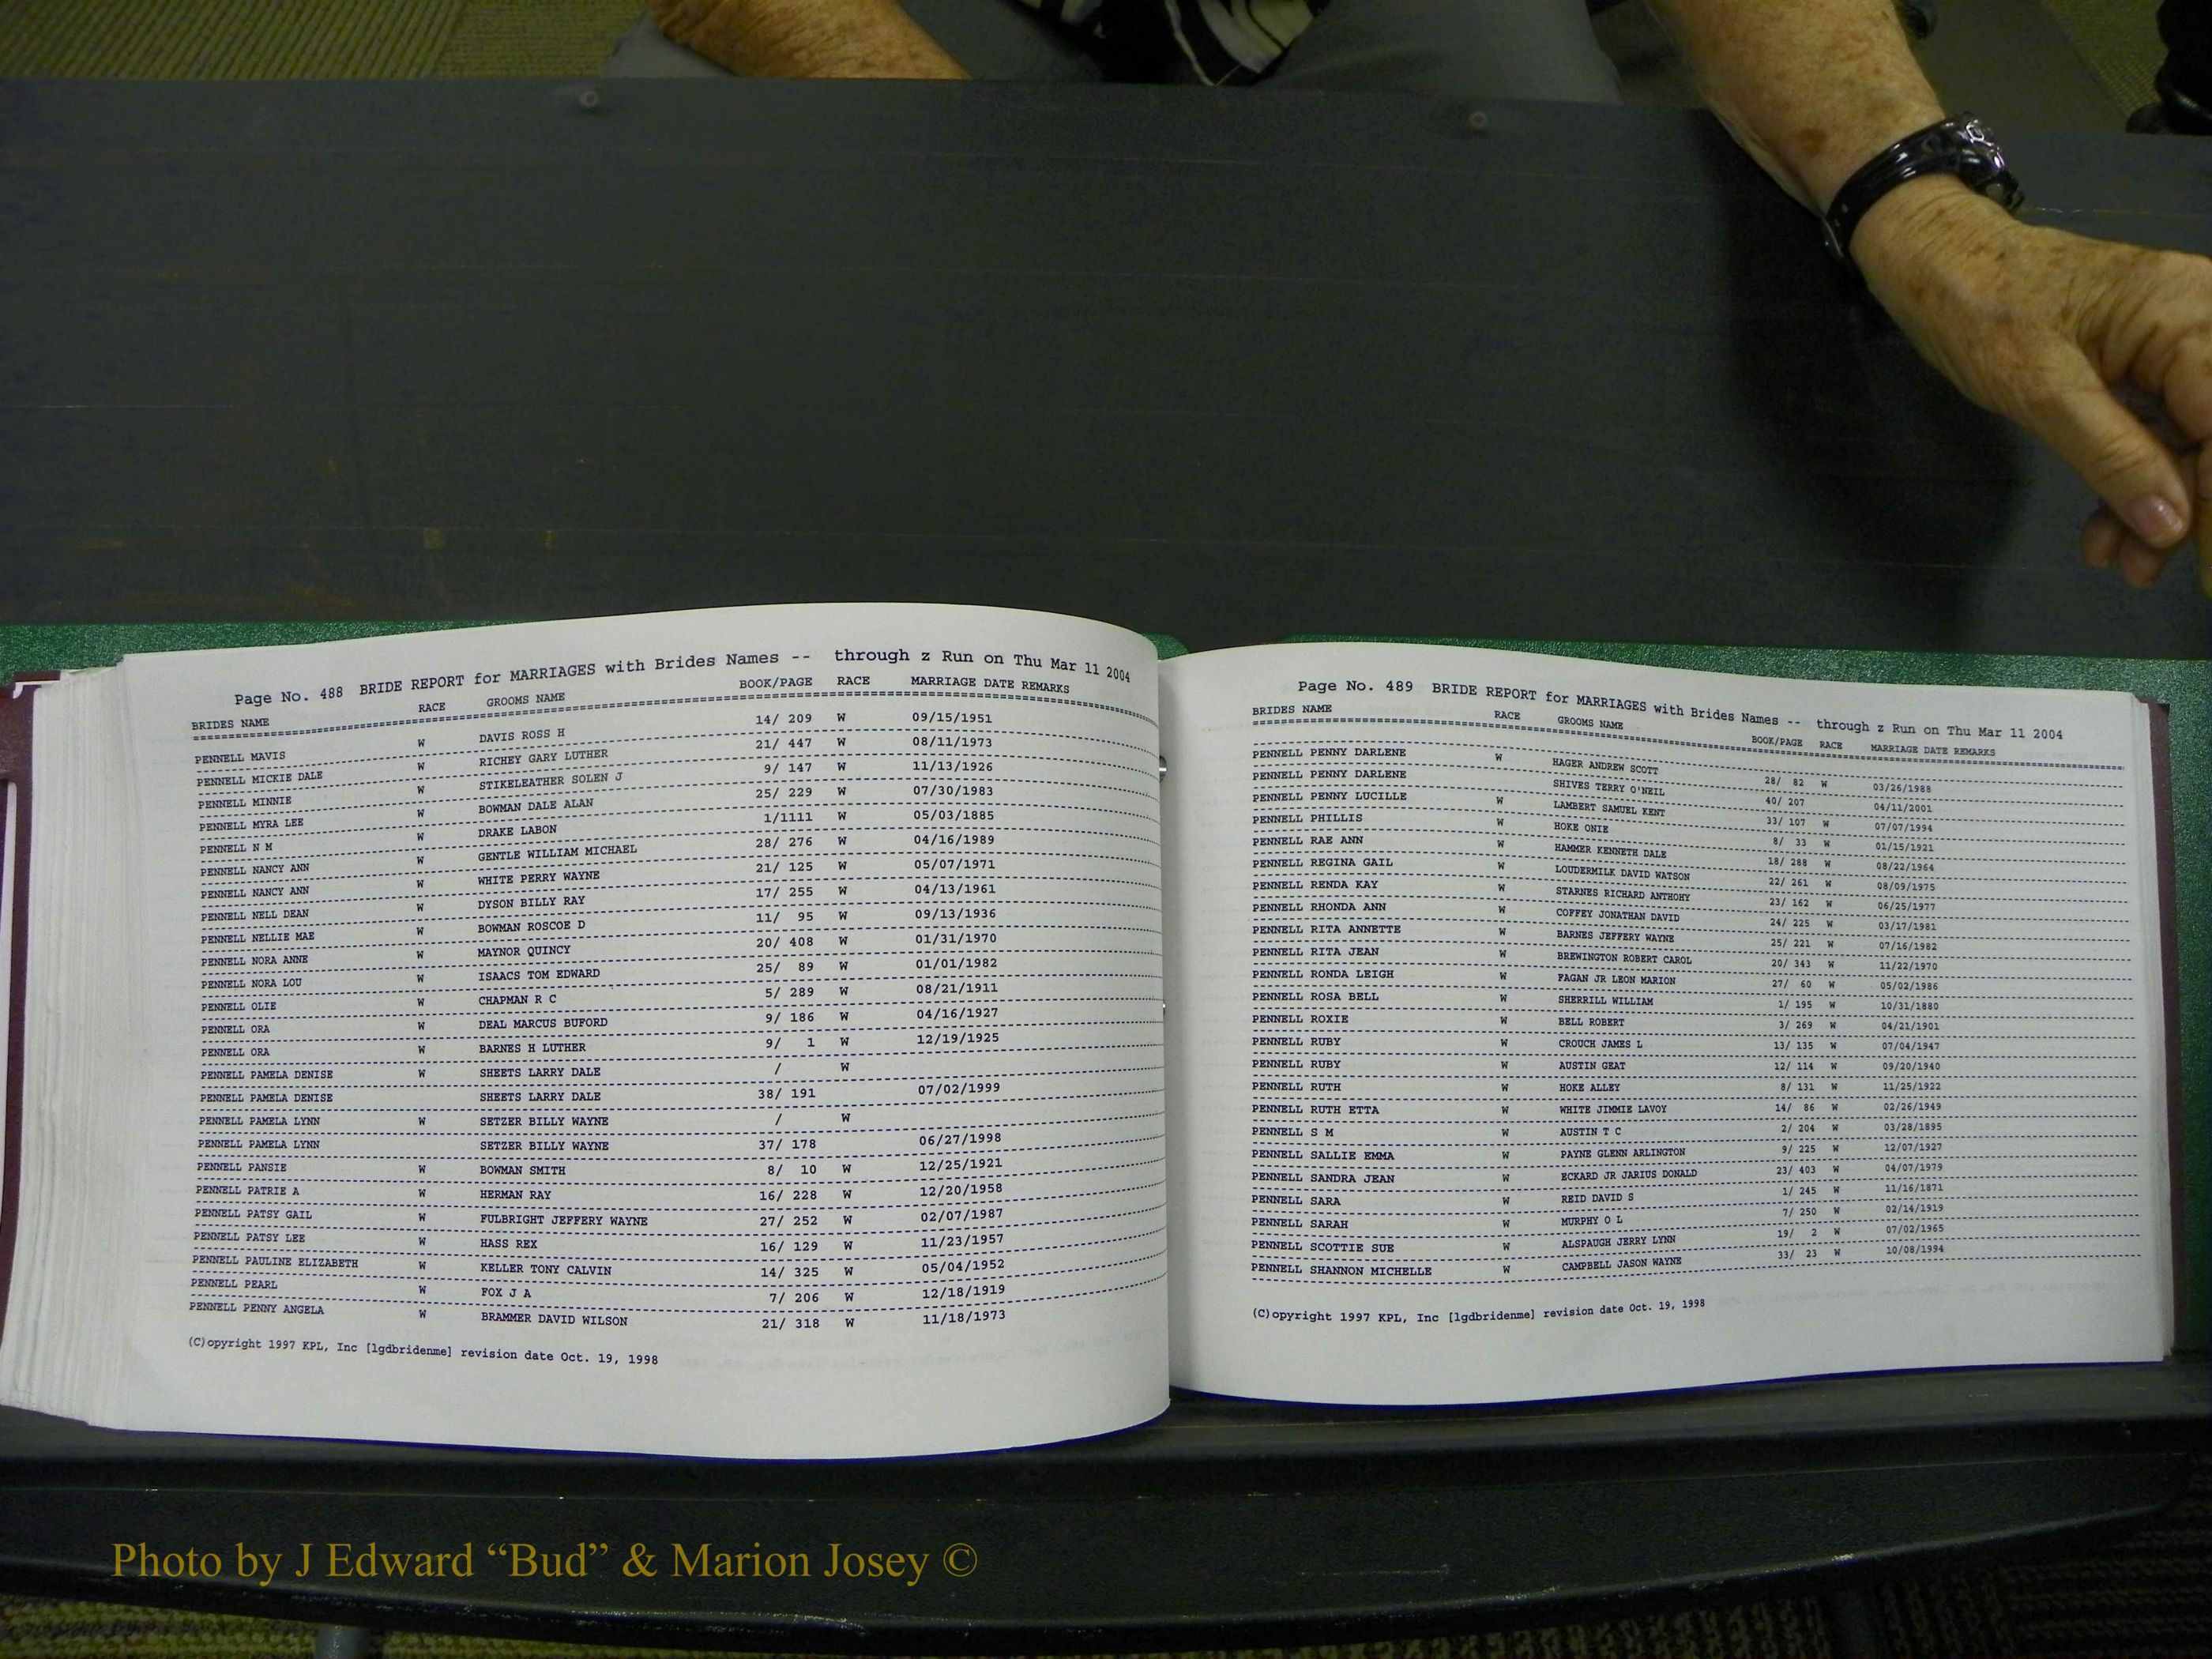 Page No. 488 BRIDE REPORT for MARRIAGES with Brides Names -- through z Run on Thu Mar 11 2004
BRIDES NAME RACE GROOMS NAME BOOK/PAGE RACE MARRIAGE DATE REMARKS
PENNELL MAVIS W DAVIS ROSS H 14/ 209 W 09/15/1951
PENNELL MICKIE DALE W RICHEY GARY LUTHER 21/ 447 W 08/11/1973
PENNELL MINNIE W STIKELEATHER SOLEN J 9/ 147 W 11/13/1926
PENNELL MYRA LEE W BOWMAN DALE ALAN 25/ 229 W 07/30/1983
PENNELL N M W DRAKE LABON 1/1111 W 05/03/1885
PENNELL NANCY ANN W GENTLE WILLIAM MICHAEL 28/ 276 W 04/16/1989
PENNELL NANCY ANN W WHITE PERRY WAYNE 21/ 125 W 05/07/1971
PENNELL NELL DEAN W DYSON BILLY RAY 17/ 255 W 04/13/1961
PENNELL NELLIE MAE W BOWMAN ROSCOE D 11/ 95 W 09/13/1936
PENNELL NORA ANNE W MAYNOR QUINCY 20/ 408 W 01/31/1970
PENNELL NORA LOU W ISAACS TOM EDWARD 25/ 89 W 01/01/1982
PENNELL OLIE W CHAPMAN R C 5/ 289 W 08/21/1911
PENNELL ORA W DEAL MARCUS BUFORD 9/ 186 W 04/16/1927
PENNELL ORA W BARNES H LUTHER 9/ 1 W 12/19/1925
PENNELL PAMELA DENISE W SHEETS LARRY DALE / W
PENNELL PAMELA DENISE SHEETS LARRY DALE 38/ 191 07/02/1999
PENNELL PAMELA LYNN W SETZER BILLY WAYNE / W
PENNELL PAMELA LYNN SETZER BILLY WAYNE 37/ 178 06/27/1998
PENNELL PANSIE W BOWMAN SMITH 8/ 10 W 12/25/1921
PENNELL PATRIE A W HERMAN RAY 16/ 228 W 12/20/1958
PENNELL PATSY GAIL W FULBRIGHT JEFFERY WAYNE 27/ 252 W 02/07/1987
PENNELL PATSY LEE W HASS REX 16/ 129 W 11/23/1957
PENNELL PAULINE ELIZABETH W KELLER TONY CALVIN 14/ 325 W 05/04/1952
PENNELL PEARL W FOX J A 7/ 206 W 12/18/1919
PENNELL PENNY ANGELA W BRAMMER DAVID WILSON 21/ 318 W 11/18/1973
(C)opyright 1997 KPL, Inc [lgdbridenme] revision date Oct. 19, 1998
Page No. 489 BRIDE REPORT for MARRIAGES with Brides Names -- through z Run on Thu Mar 11 2004
BRIDES NAME RACE GROOMS NAME BOOK/PAGE RACE MARRIAGE DATE REMARKS
PENNELL PENNY DARLENE W HAGER ANDREW SCOTT 28/ 82 W 03/26/1988
PENNELL PENNY DARLENE SHIVES TERRY O'NEIL 40/ 207 04/11/2001
PENNELL PENNY LUCILLE W LAMBERT SAMUEL KENT 33/ 107 W 07/07/1994
PENNELL PHILLIS W HOKE ONIE 8/ 33 W 01/15/1921
PENNELL RAE ANN W HAMMER KENNETH DALE 18/ 288 W 08/22/1964
PENNELL REGINA GAIL W LOUDERMILK DAVID WATSON 22/ 261 W 08/09/1975
PENNELL RENDA KAY W STARNES RICHARD ANTHONY 23/ 162 W 06/25/1977
PENNELL RHONDA ANN W COFFEY JONATHAN DAVID 24/ 225 W 03/17/1981
PENNELL RITA ANNETTE W BARNES JEFFERY WAYNE 25/ 221 W 07/16/1982
PENNELL RITA JEAN W BREWINGTON ROBERT CAROL 20/ 343 W 11/22/1970
PENNELL RONDA LEIGH W FAGAN JR LEON MARION 27/ 60 W 05/02/1986
PENNELL ROSA BELL W SHERRILL WILLIAM 1/ 195 W 10/31/1880
PENNELL ROXIE W BELL ROBERT 3/ 269 W 04/21/1901
PENNELL RUBY W CROUCH JAMES L 13/ 135 W 07/04/1947
PENNELL RUBY W AUSTIN GEAT 12/ 114 W 09/20/1940
PENNELL RUTH W HOKE ALLEY 8/ 131 W 11/25/1922
PENNELL RUTH ETTA W WHITE JIMMIE LAVOY 14/ 86 W 02/26/1949
PENNELL S M W AUSTIN T C 2/ 204 W 03/28/1895
PENNELL SALLIE EMMA W PAYNE GLENN ARLINGTON 9/ 225 W 12/07/1927
PENNELL SANDRA JEAN W ECKARD JR JARIUS DONALD 23/ 403 W 04/07/1979
PENNELL SARA W REID DAVID S 1/ 245 W 11/16/1871
PENNELL SARAH W MURPHY O L 7/ 250 W 02/14/1919
PENNELL SCOTTIE SUE W ALSPAUGH JERRY LYNN 19/ 2 W 07/02/1965
PENNELL SHANNON MICHELLE W CAMPBELL JASON WAYNE 33/ 23 W 10/08/1994
(C)opyright 1997 KPL, Inc [lgdbridenme] revision date Oct. 19, 1998
Photo by J Edward “Bud” & Marion Josey ©